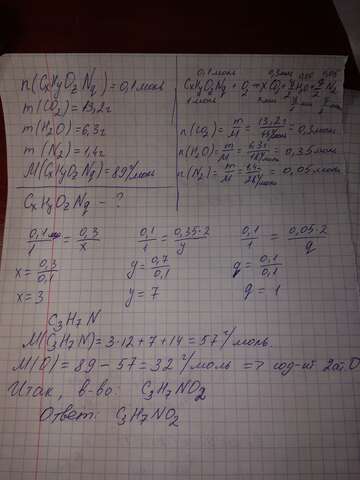 n(CxHyO2Nq) = 0,1 моль
m(CO2) = 13,2г
m(H2O) = 6,3г
m(N2) = 1,4г
M(CxHyO2Nq) = 89 г/моль
CxHyO2Nq - ?
0,1 моль 0,3 моль 0,35 0,05
CxHyO2Nq + O2 → xCO2 + y/2 H2O + q/2 N2
1 моль x моль y/2 моль q/2 моль
n(CO2) = m/M = 13,2г / 44 г/моль = 0,3 моль
n(H2O) = m/M = 6,3г / 18 г/моль = 0,35 моль
n(N2) = m/M = 1,4г / 28 г/моль = 0,05 моль
0,1/1 = 0,3/x 0,1/1 = 0,35·2/y 0,1/1 = 0,05·2/q
x = 0,3/0,1 y = 0,7/0,1 q = 0,1/0,1
x = 3 y = 7 q = 1
C3H7N
M(C3H7N) = 3·12 + 7 + 14 = 57 г/моль
M(O) = 89 - 57 = 32 г/моль => сод-ит 2ат. O
Итак, в-во: C3H7NO2
Ответ: C3H7NO2